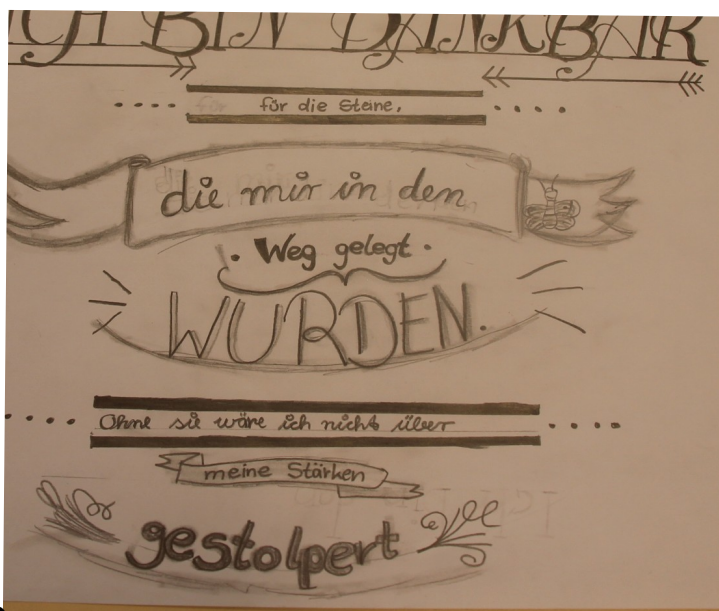 ICH BIN DANKBAR
für die Steine,
die mir in den
Weg gelegt
WURDEN.
Ohne sie wäre ich nicht über
meine Stärken
gestolpert